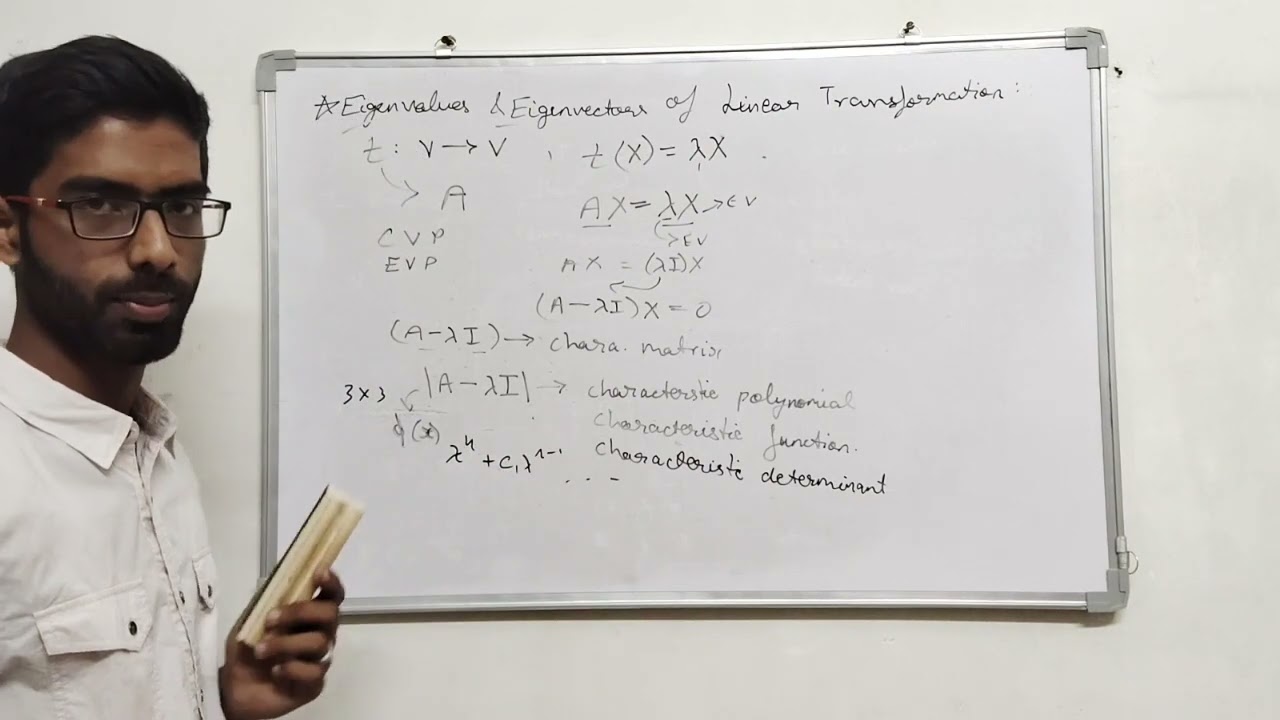 ☆ Eigenvalues & Eigenvectors of Linear Transformation:
t : V → V , t(X) = λX .
> A AX = λX → EV
C V P > EV
E V P AX = (λI)X
(A − λI)X = 0
(A − λI) → chara. matrix
3 × 3 |A − λI| → characterstic polynomial
characteristic function.
λⁿ + C₁λⁿ⁻¹ characteristic determinant
. . . -